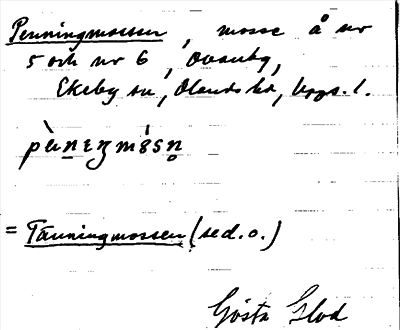 Penningmossen, mosse å nr
5 och nr 6, Ovanby,
Ekeby sn, Olands hd, Upps. l.
= Tänningmossen (sed. o.)
Gösta Glod